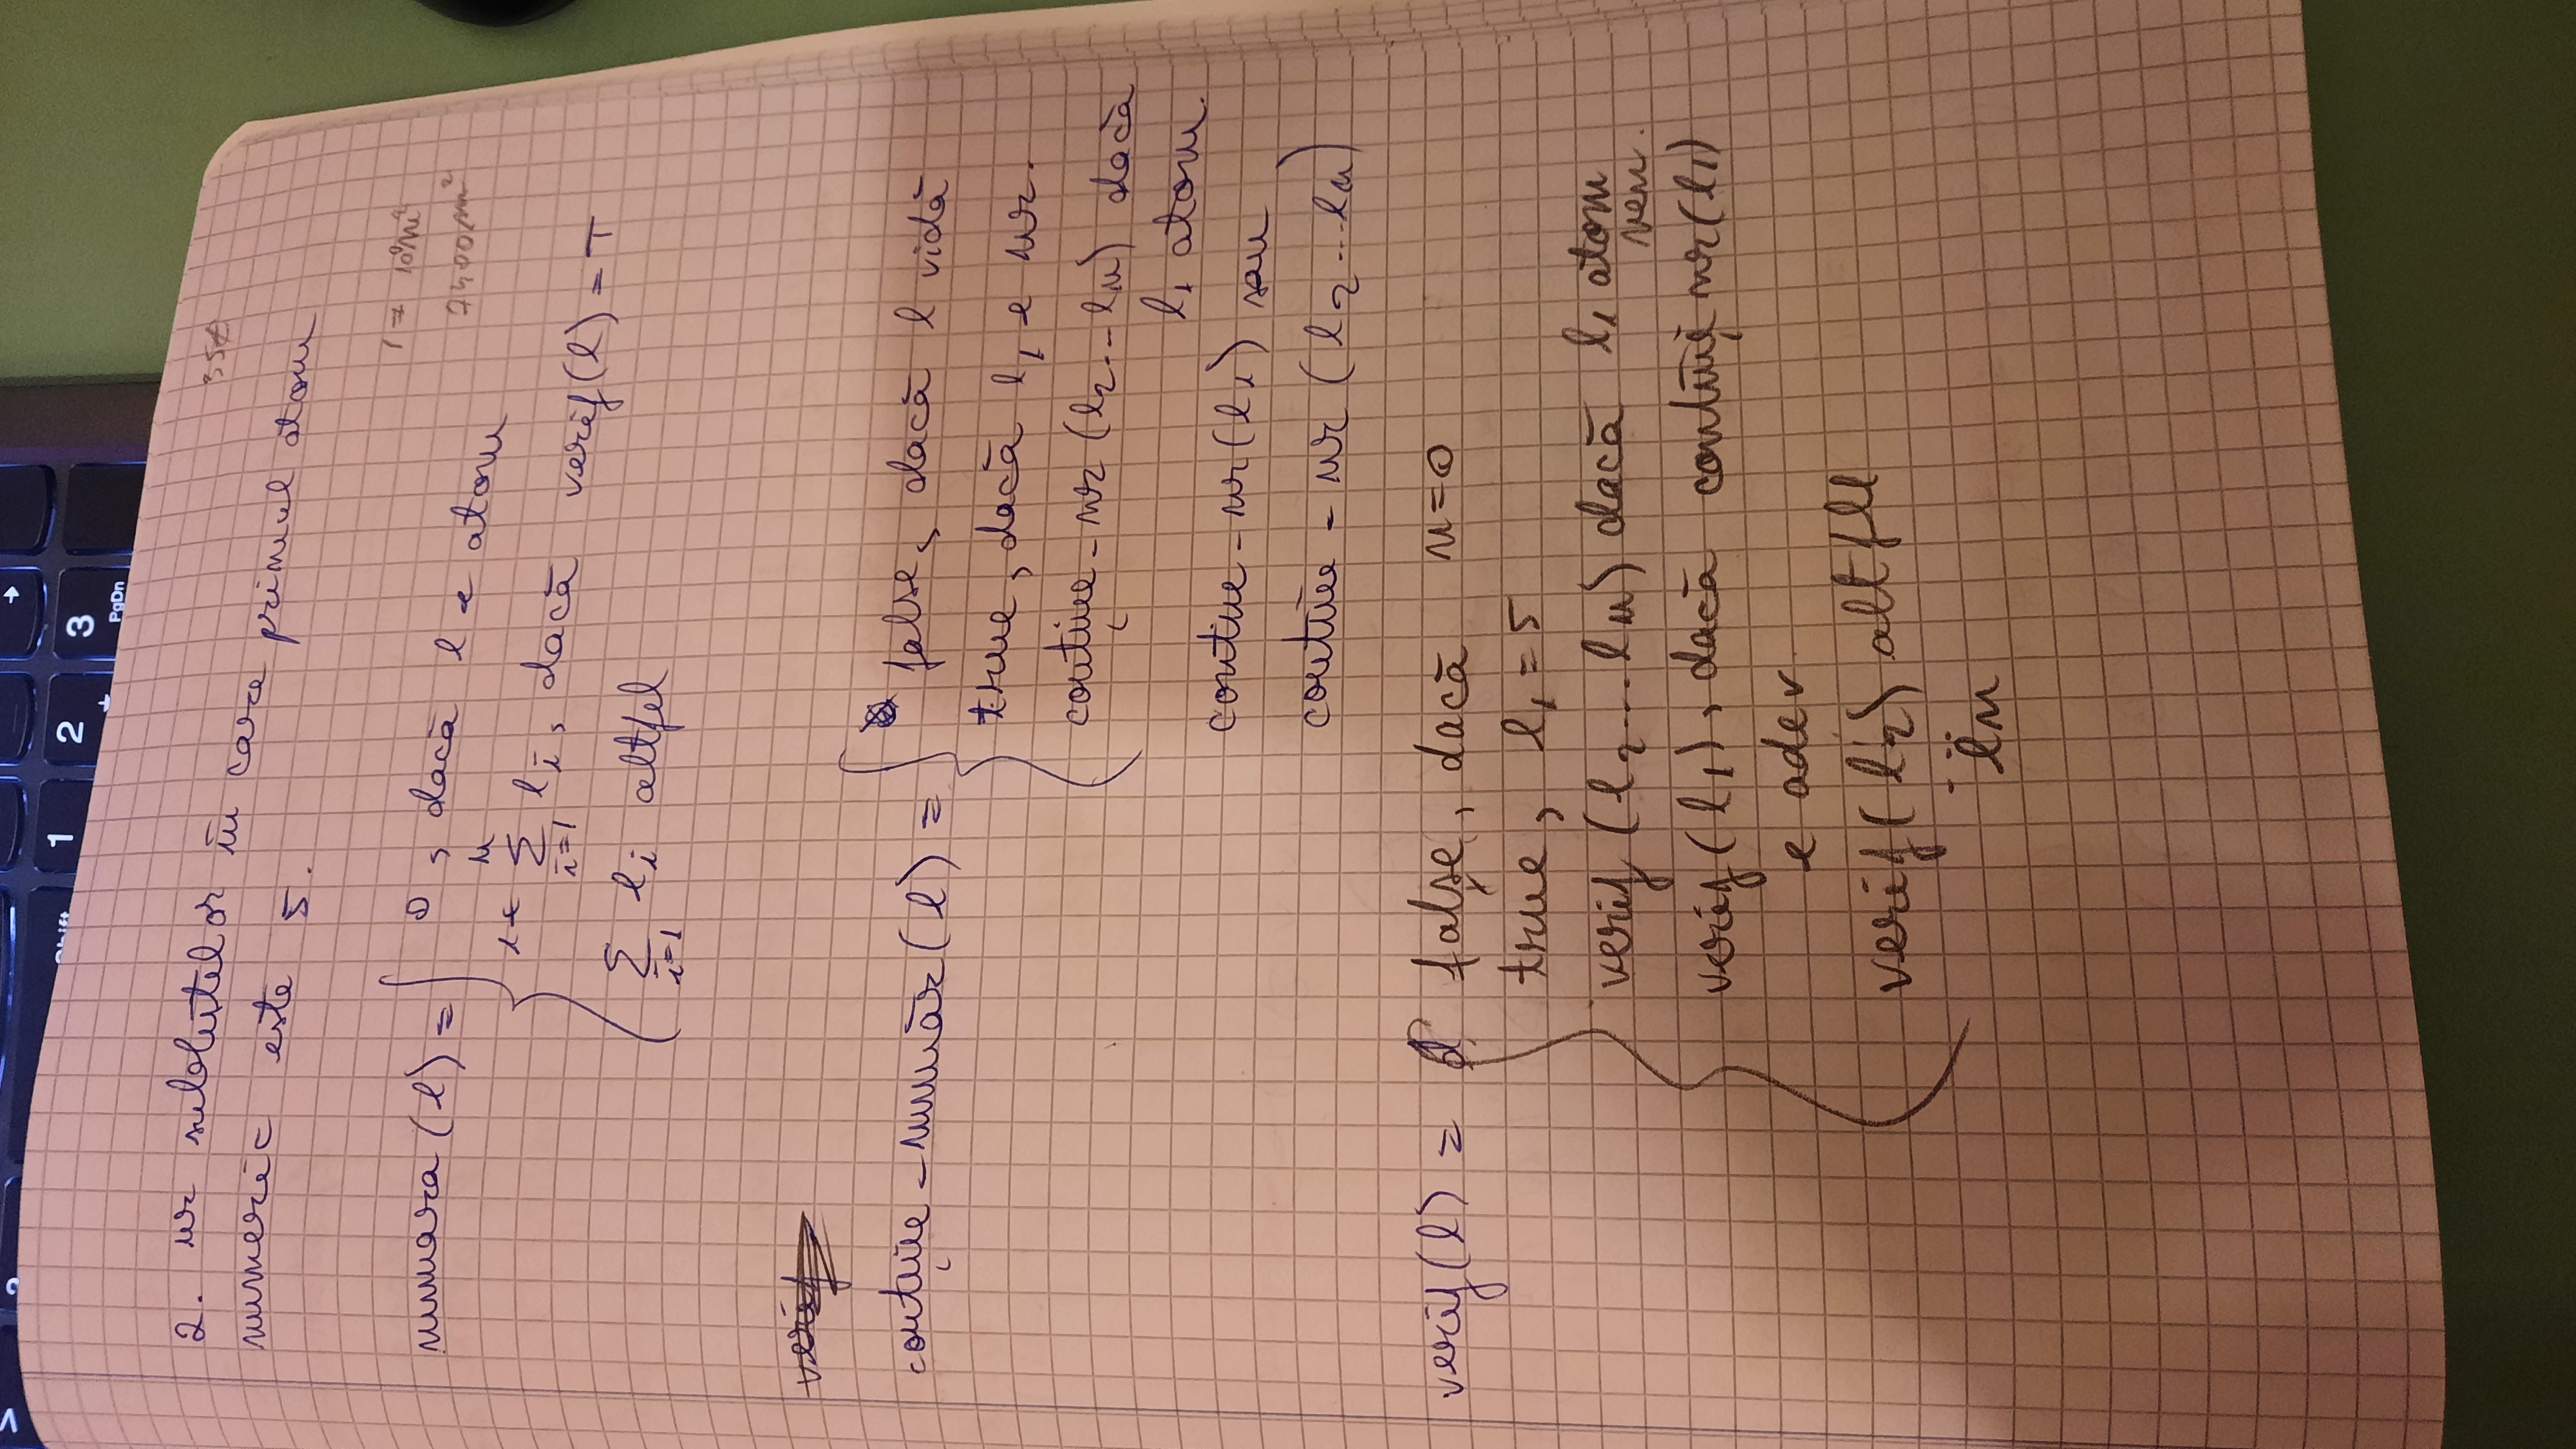 Shift
1
2
3
PgDn
2. nr sublistelor în care primul atom
numeric este 5.
numara (l) = 0, dacă l e atom
1 + n Σ i=1 li, dacă verif(l) = T
Σ i=1 li altfel
verif
conține - număr (l) = false, dacă l vidă
true, dacă l1 e nr.
conține - nr (l2 ... ln) dacă
l1 atom.
contine - nr (l1) sau
contine - nr (l2 ... ln)
verif(l) = false, dacă n=0
true, l1 = 5
verif (l2 ... ln) dacă l1 atom
nenr.
verif (l1), dacă conține nr(l1)
e adev
verif (l2) altfel
... ln